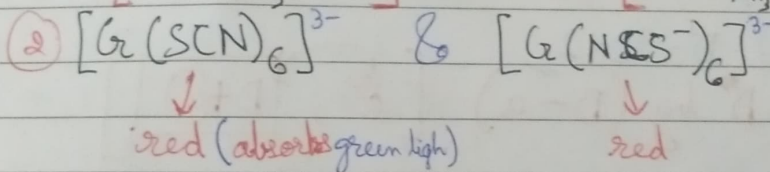 ② [Cr(SCN)₆]³⁻ & [Cr(NCS⁻)₆]³⁻
↓ ↓
red (absorbs green ligh) red